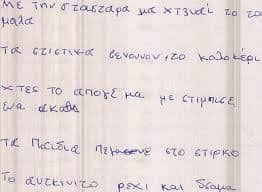 Με την σταςταρα μα χτενάι το το
μαλα
τα στιστικα βενουνον, το καλοκέρι
χτες το απογε μα με στιμπισε
ενα ακαθι
τα παιδια στο στιρκο
Το αυτκινιτο ρεχι και